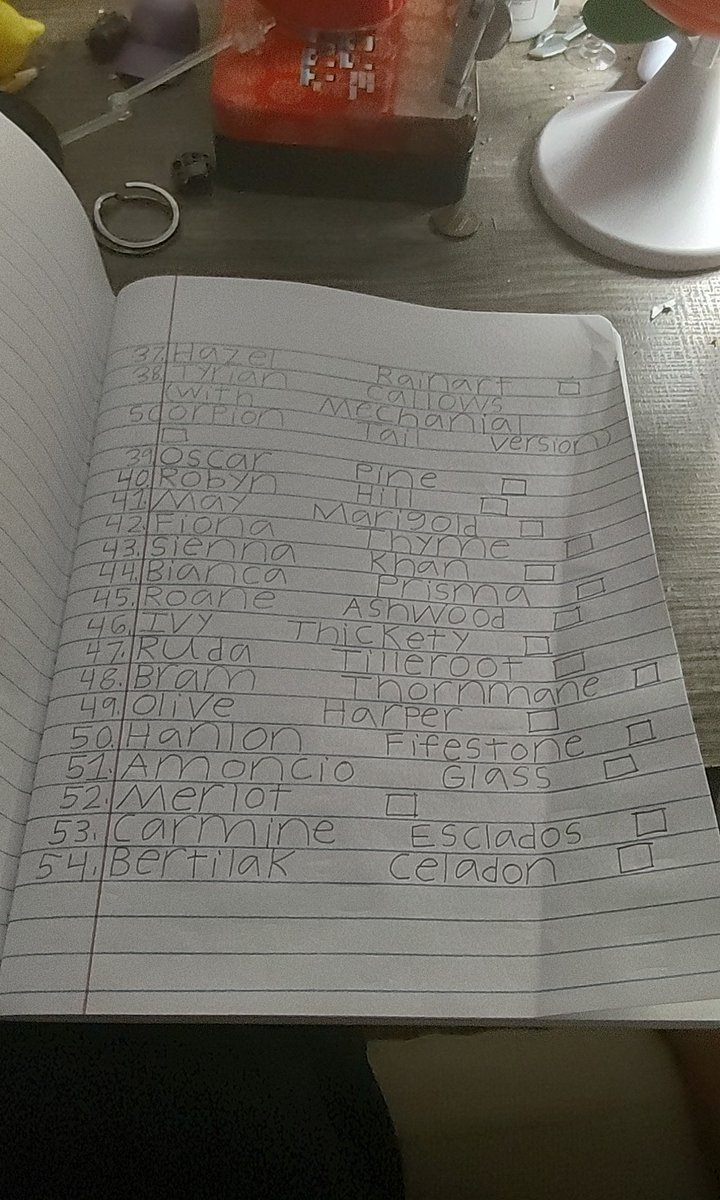 37. Hazel Rainart
38. Tyrian Callows
(with Mechanial
Scorpion Tail version)
39. Oscar Pine
40. Robyn Hill
41. May Marigold
42. Fiona Thyme
43. Sienna Khan
44. Bianca Prisma
45. Roane Ashwood
46. Ivy Thickety
47. Ruda Tilleroot
48. Bram Thornmane
49. Olive Harper
50. Hanlon Fifestone
51. Amoncio Glass
52. Merlot
53. Carmine Esclados
54. Bertilak Celadon